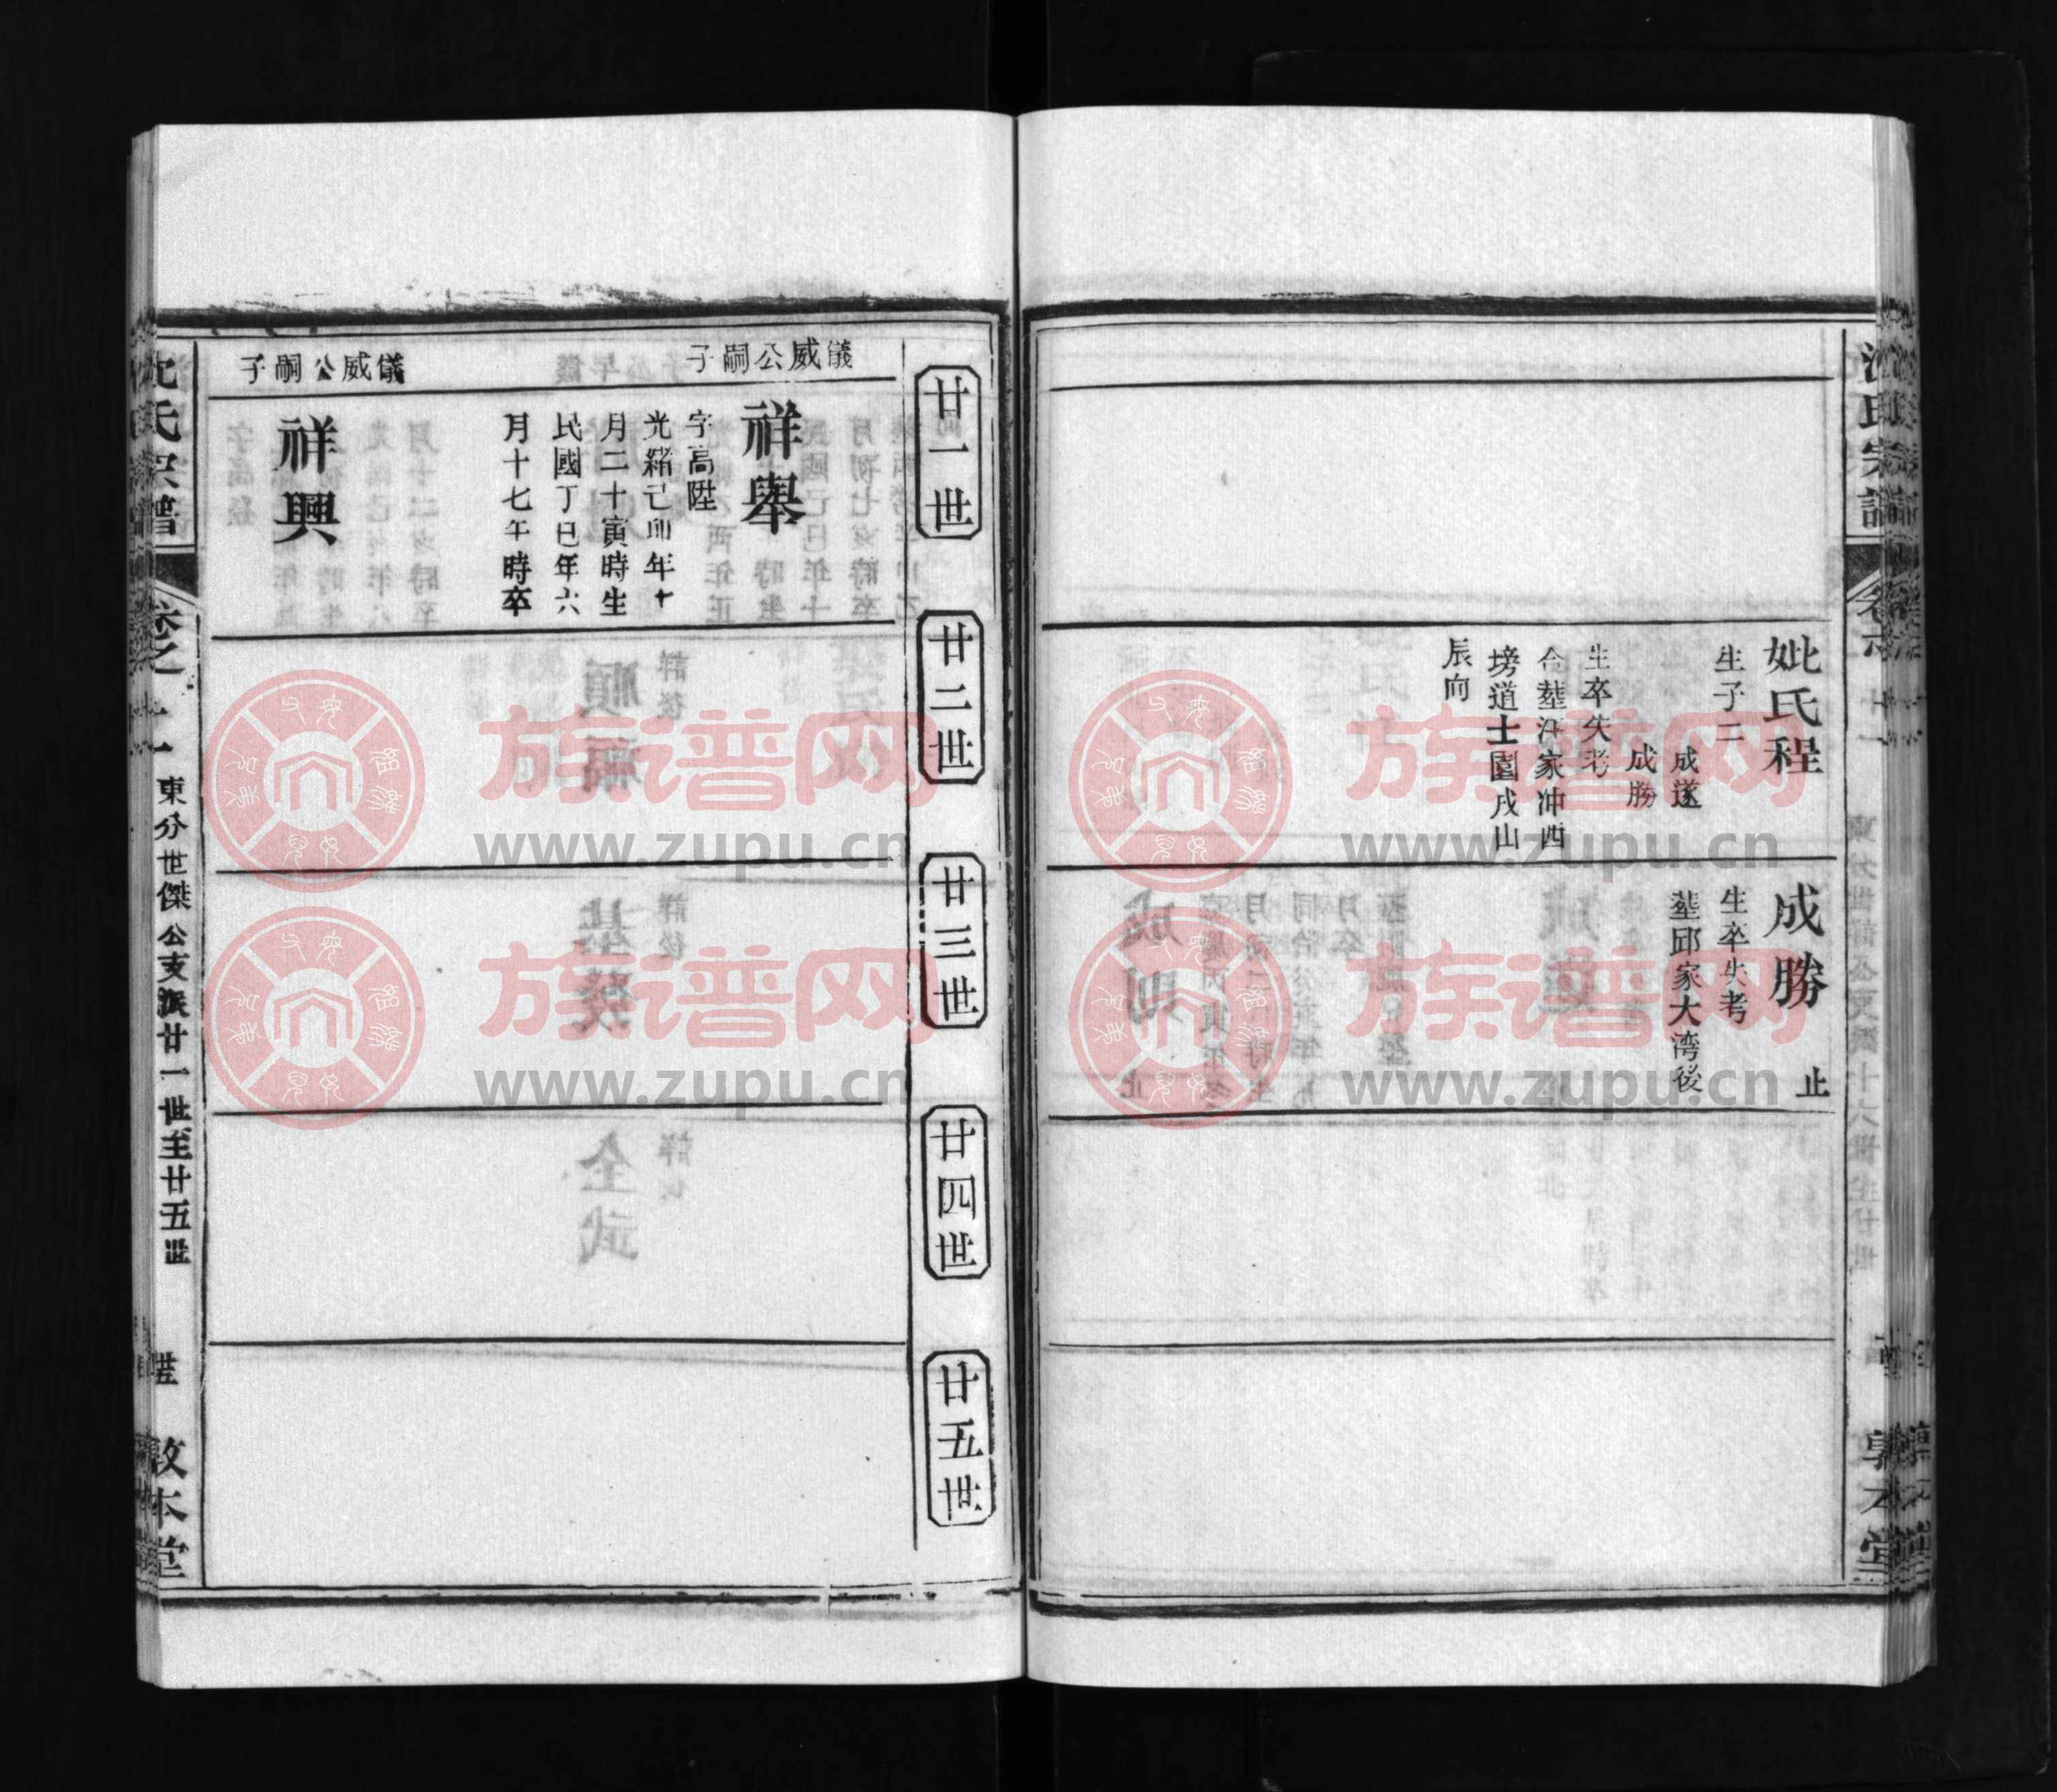 沈氏宗譜
妣氏程
生子二
成遂
成勝
生卒失考
合塟汪家冲西
塝道士園戌山
辰向
成勝 止
生卒失考
塟邱家大湾後
敦本堂
廿一世
廿二世
廿三世
廿四世
廿五世
儀威公嗣子
祥舉
字高陞
光緒己卯年十
月二十寅時生
民國丁巳年六
月十七午時卒
儀威公嗣子
祥興
沈氏宗譜
東分世傑公支派廿一世至廿五世
敦本堂
族谱网
www.zupu.cn
族谱网
www.zupu.cn
族谱网
www.zupu.cn
族谱网
www.zupu.cn